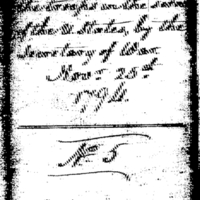 the troops in the service
of the U. States, by the
Secretary of War
Novr. 25th
1794.
No. 5